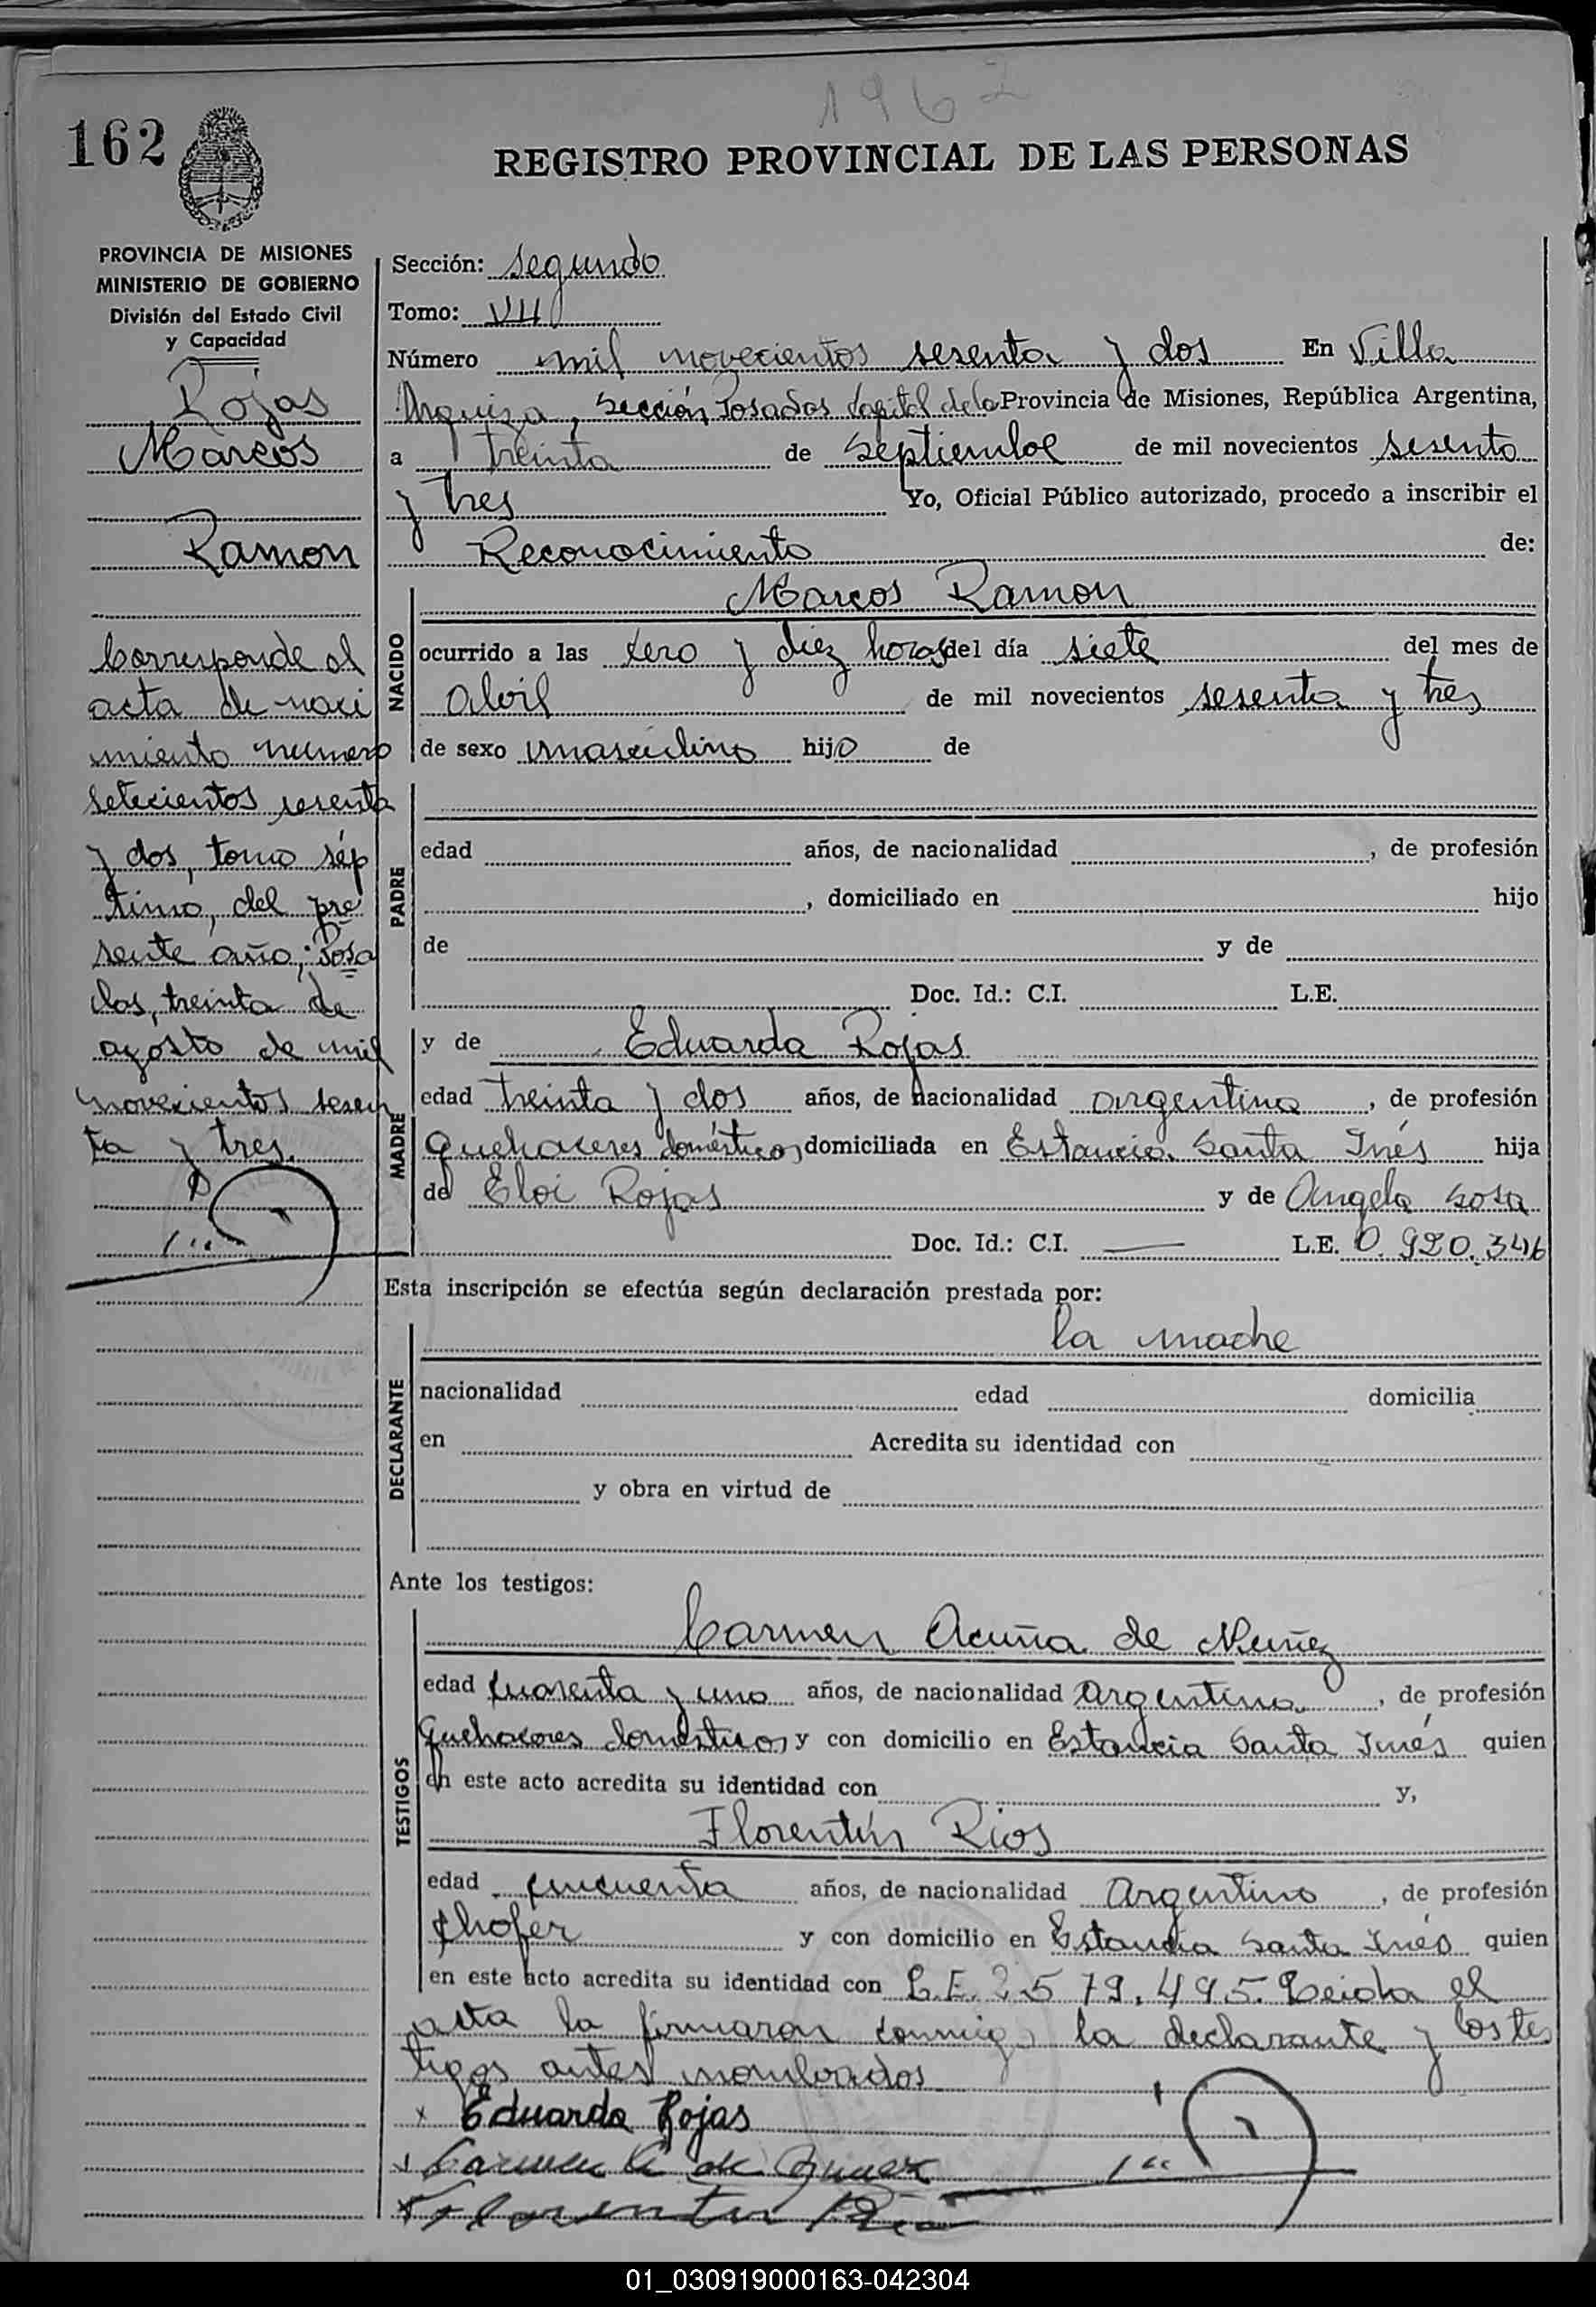 1962
162
REGISTRO PROVINCIAL DE LAS PERSONAS
PROVINCIA DE MISIONES
MINISTERIO DE GOBIERNO
División del Estado Civil
y Capacidad
Rojas
Marcos
Ramon
Corresponde al
acta de naci
miento numero
setecientos sesenta
y dos, tomo sép
timo, del pre
sente año; Posa
das, treinta de
agosto de mil
novecientos sesen
ta y tres.
Sección: segundo
Tomo: VII
Número mil novecientos sesenta y dos En Villa
Urquiza, Sección Posadas Capital de la Provincia de Misiones, República Argentina,
a treinta de septiembre de mil novecientos sesenta
y tres Yo, Oficial Público autorizado, procedo a inscribir el
Reconocimiento de:
NACIDO
Marcos Ramon
ocurrido a las cero y diez horas del día siete del mes de
abril de mil novecientos sesenta y tres
de sexo masculino hijo de
PADRE
edad años, de nacionalidad , de profesión
, domiciliado en hijo
de y de
Doc. Id.: C.I. L.E.
MADRE
y de Eduarda Rojas
edad treinta y dos años, de nacionalidad argentina, de profesión
quehaceres domésticos domiciliada en Estancia Santa Inés hija
de Eloi Rojas y de Angela Sosa
Doc. Id.: C.I. — L.E. 0.920.346
Esta inscripción se efectúa según declaración prestada por:
la madre
DECLARANTE
nacionalidad edad domicilia
en Acredita su identidad con
y obra en virtud de
Ante los testigos:
TESTIGOS
Carmen Acuña de Nuñez
edad cuarenta y uno años, de nacionalidad Argentina, de profesión
Quehaceres domésticos y con domicilio en Estancia Santa Inés quien
en este acto acredita su identidad con y,
Florentín Rios
edad cincuenta años, de nacionalidad Argentino, de profesión
chofer y con domicilio en Estancia Santa Inés quien
en este acto acredita su identidad con L.E. 2.579.495. Leida el
acta la firmaron conmigo la declarante y los tes
tigos antes nombrados
x Eduarda Rojas
x Carmen A de Nuñez
x Florentin Rio
01_030919000163-042304